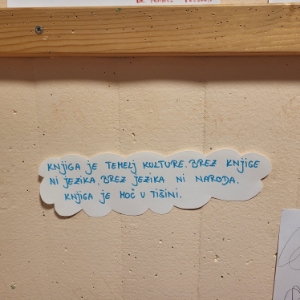 KNJIGA JE TEMELJ KULTURE. BREZ KNJIGE
NI JEZIKA. BREZ JEZIKA NI NARODA.
KNJIGA JE MOČ V TIŠINI.